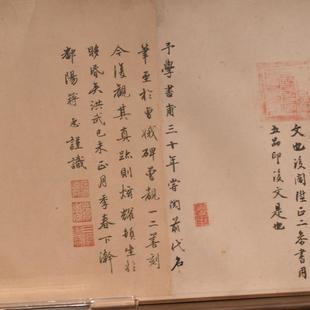 文也後閱陞正二叅書用
五品印後文是也
予學書甫三十年嘗閱前代名
筆至於曹娥碑曾觀一二善刻
今獲觀其真跡則炫耀頓生於
眵昏矣洪武己未正月季春下澣
鄱陽蔣 謹識